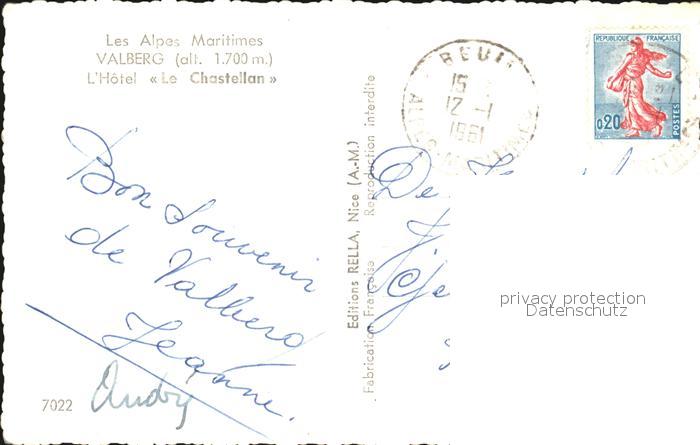 Les Alpes Maritimes
VALBERG (alt. 1.700 m.)
L'Hôtel « Le Chastellan »
Bon Souvenir
de Valberg
Jeanne.
Andry
7022
Editions RELLA, Nice (A.-M.)
Fabrication Française Reproduction interdite
BEUIL
15
12 -1
1961
ALPES-MARITIMES
REPUBLIQUE FRANÇAISE
0,20
POSTES
De
privacy protection
Datenschutz